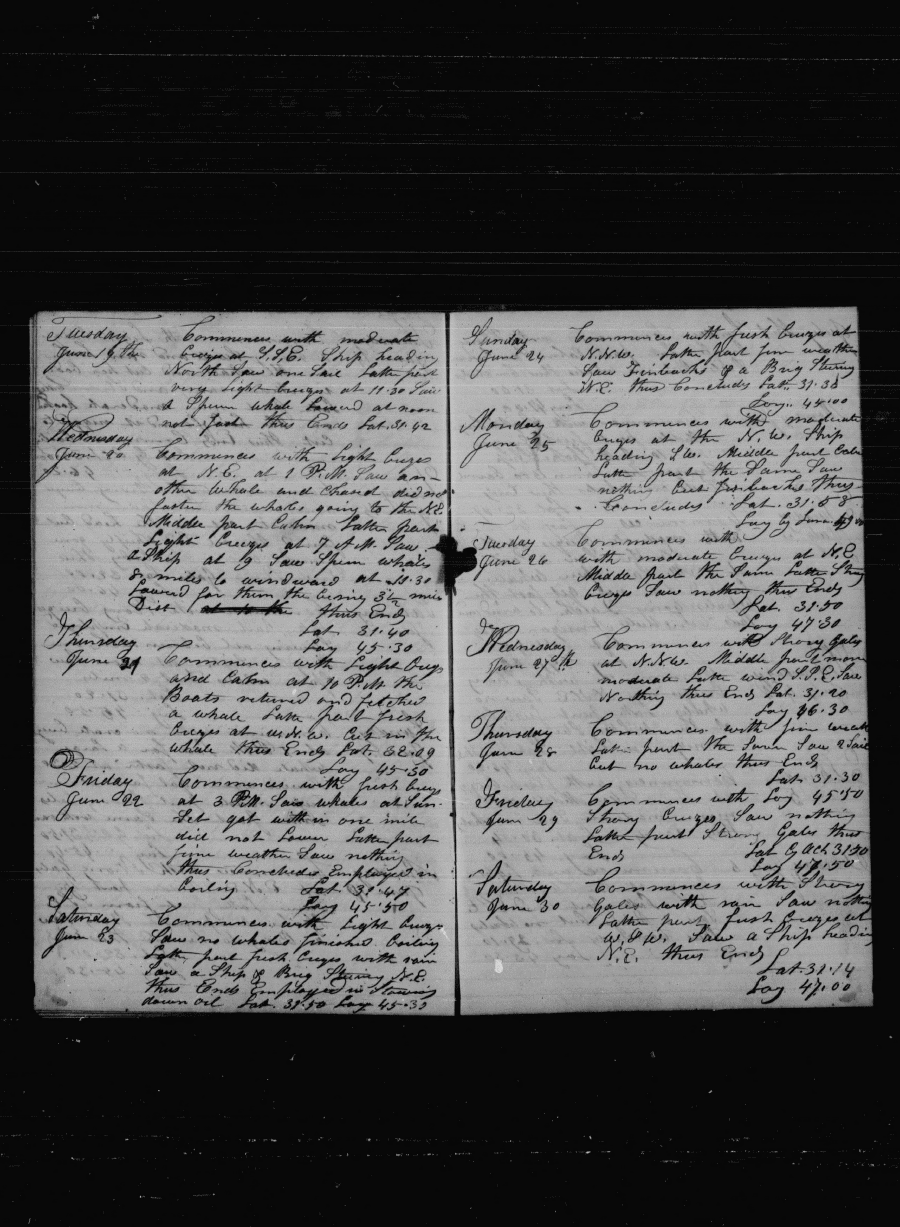 Tuesday
June 19 the
Commences with moderate
breezes at S.S.E. Ship heading
North Saw one Sail Latter part
very Light breezes at 11.30 Saw
a Spurm whale Lowerd at noon
not fast thus Ends Lat. 31.42
Wednesday
June 20
Commences with Light brezes
at N.E. at 1 P.M. Saw an-
other Whale and Chased did not
fasten the whales going to the N.E.
Middle part Calm Latter part
Light breezes at 7 A.M. Saw
a Ship at 9 Saw Spurm whales
8 miles to windward at 11.30
Lowerd for them the being 3½ miles
Dist thus Ends
Lat 31.40
Loy 45.30
Thursday
June 21
Commences with Light brezes
and Calm at 10 P.M. the
Boats returned and fetched
a whale Latter part fresh
brezes at W.N.W. Cut in the
whale thus Ends Lat. 32.09
Loy 45.30
Friday
June 22
Commences with fresh brezes
at 3 P.M. Saw whales at Sun-
Set got within one mile
did not Lower Latter part
fine weather Saw nothing
thus Concludes Employed in
boiling Lat 31.47
Loy 45.50
Saturday
June 23
Commences with Light brezes
Saw no whales finished boiling
Latter part fresh brezes with rain
Saw a Ship & Brig Stering N.E.
thus Ends Employed in Stowing
down oil Lat. 31.50 Loy 45.30
Sunday
June 24
Commences with fresh brezes at
N.N.W. Latter part fine weather
Saw Finbacks & a Brig Stering
N.E. thus Concludes Lat. 31.38
Loy. 44.00
Monday
June 25
Commences with moderate
brezes at the N.W. Ship
heading S.W. Middle part Calm
Latter part the Same Saw
nothing but finbacks thus
Concludes Lat. 31.58
Loy by Luna
Tuesday
June 26
Commences with
with moderate brezes at N.E.
Middle part the Same Latter Strong
brezes Saw nothing thus Ends
Lat. 31.50
Loy 47.30
Wednesday
June 27th
Commences with Strong gales
at N.N.W. Middle part more
moderate Latter wind S.S.E. Saw
Nothing thus Ends Lat. 31.20
Loy 46.30
Thursday
June 28
Commences with fine weather
Latter part the Same Saw 2 Sail
but no whales thus Ends
Lat. 31.30
Loy 45.50
Friday
June 29
Commences with
Strong brezes Saw nothing
Latter part Strong Gales thus
Ends Lat by Act 31.50
Loy 47.50
Saturday
June 30
Commences with Strong
Gales with rain Saw nothing
Latter part fresh brezes at
W.S.W. Saw a Ship heading
N.E. thus Ends
Lat. 31.14
Loy 47.00